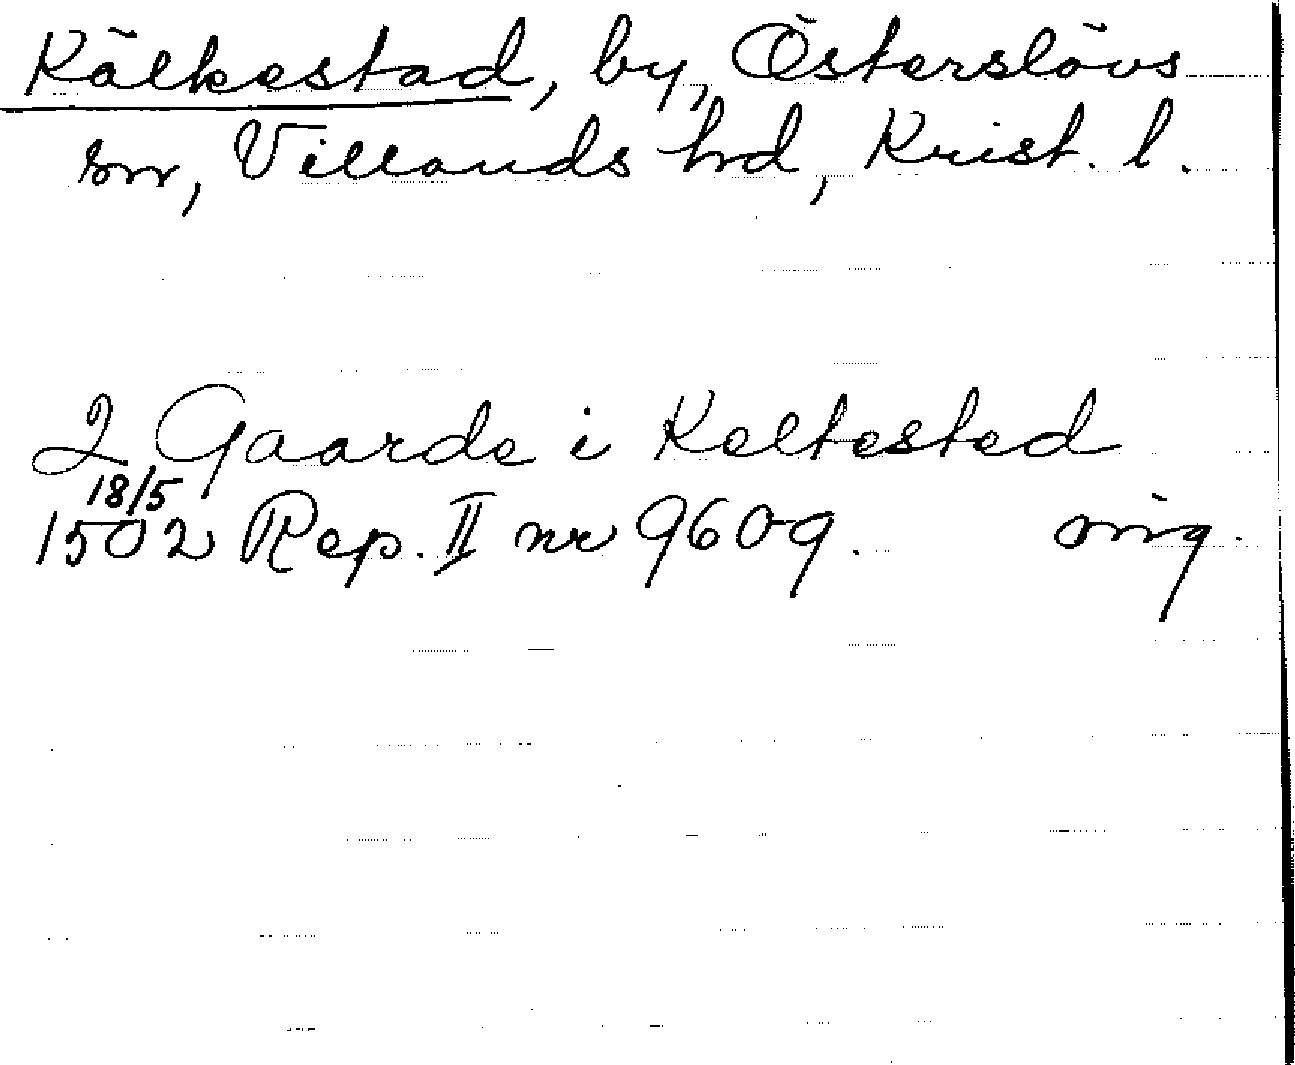 Kälkestad, by, Österslövs
sn, Villands hd, Krist. l.
2 Gaarde i Keltested
18/5
1502 Rep. II nr 9609. orig.